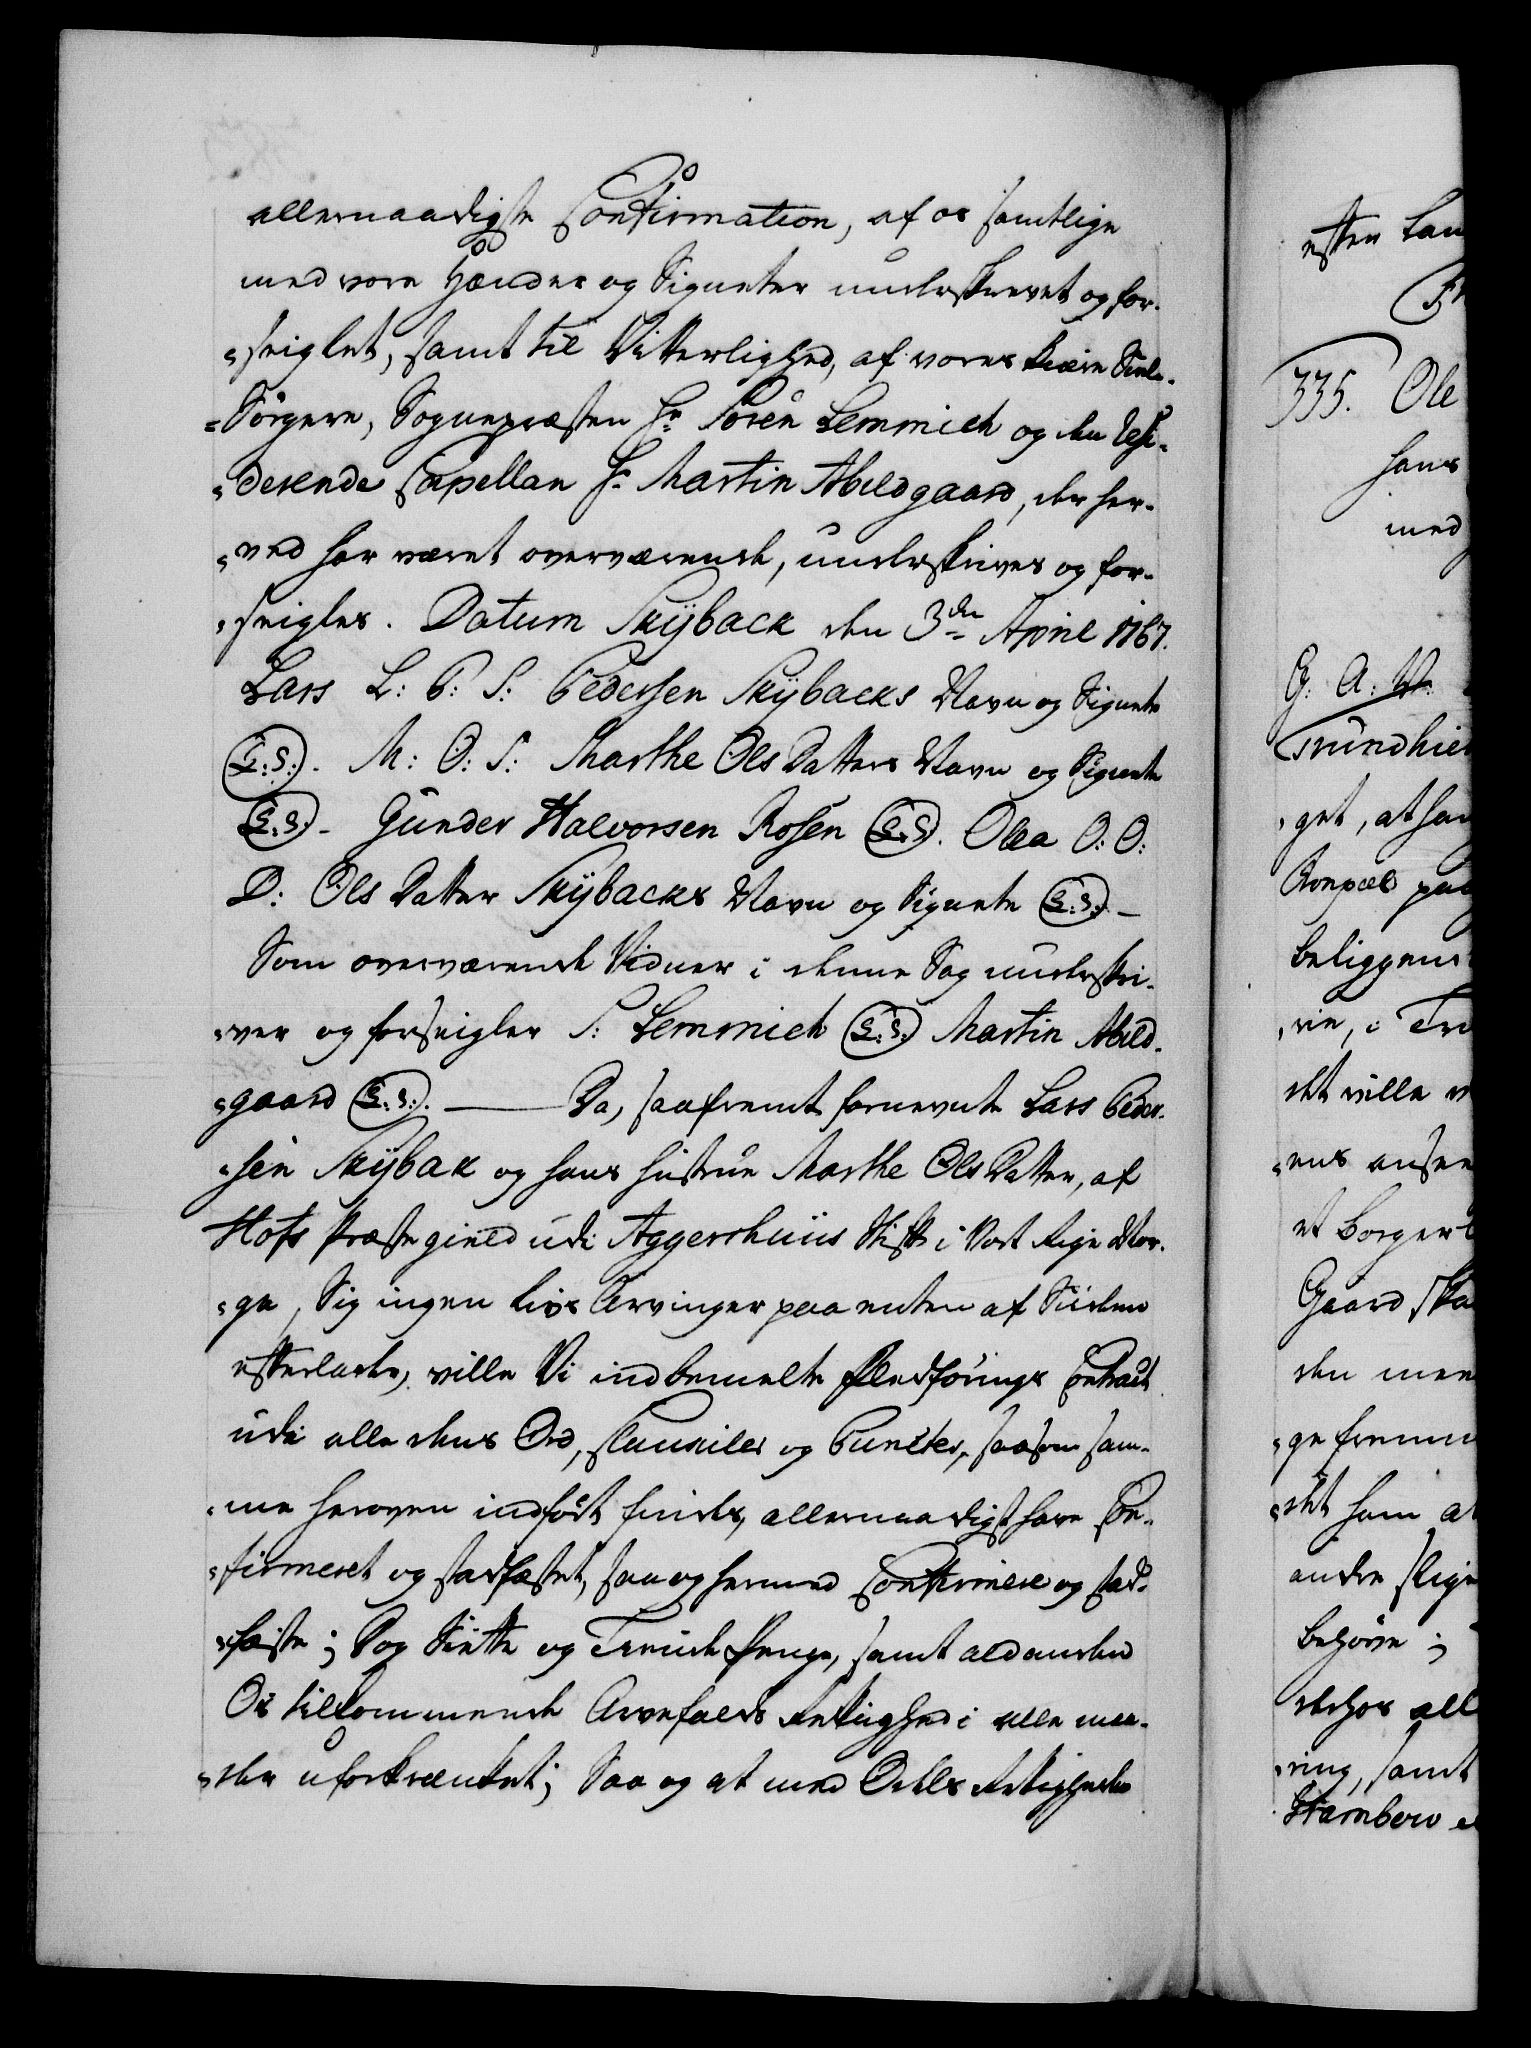 allernaadigste Confirmation, af os samtlige
med vore Hænder og Signeter underskrevet og for-
seiglet, samt til Vitterlighed, af vores kiære Siele-
Sørgere, Sognepræsten Hr. Søren Lemmich og den resi-
derende Capellan Hr. Martin Abildgaard, der her-
ved har været overværende, underskrives og for-
seigles. Datum Skÿback den 3den April 1767.
Lars L: P: S: Pedersen Skÿbacks Navn og Signete
(L:S:). M: O: D: Marthe Ols Datters Navn og Signete
(L:S:) - Gunder Halvorsen Rosen (L:S). Olea O: O:
D: Ols Datter Skÿbacks Navn og Signete (L:S:). -
Som overværende Vidner i denne Sag underskri-
ver og forseigler S: Lemmich (L:S:) Martin Abild-
gaard (L:S:). — Da, saafremt fornevnte Lars Peder-
sen Skÿbak og hans Hustrue Marthe Ols Datter, af
Hofs Præstegield udi Aggershuus Stift i Vort Rige Nor-
ge, Sig ingen Livs Arvinger paa enten af Siiderne
efterlader, ville Vi indbemelte Fledførings Contract
udi alle dens Ord, Clausuler og Puncter, saasom sam-
me heroven indført findes, allernaadigst have Con-
firmeret og stadfæstet, saa og hermed Confirmere og stad-
fæste; Dog Siette og Tiende Penge, samt ald anden
Os tilkommende Arvefalds Rettighed i alle maa-
der uforkrænket; Saa og at med Odels Rettigheden
efter Lan
335. Ole
hans
med
G: A: W:
Trundhiem
get, at han
paa
beliggende
rie, i Tro
det ville
ens ansee
et Borgerl
Gaard Ska
den mee
ge fremme
det ham at
andre slige
behørige;
derhos all
ring, samt
Strambow